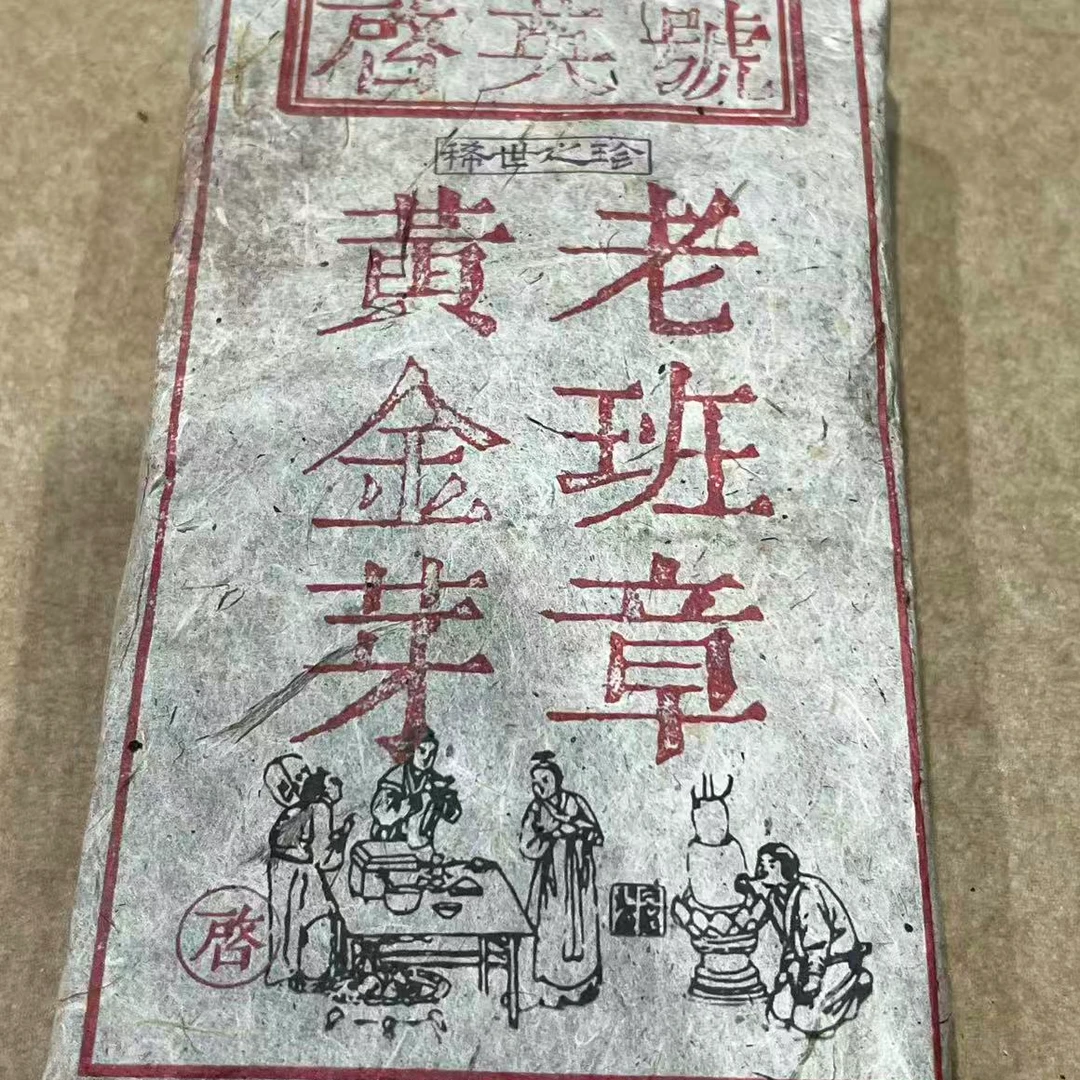 啓英號
稀世之珍
老班章
黃金芽
啓